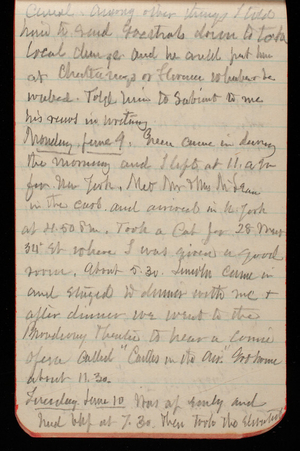 Canal. Among other things I told
him to send Goethals down to take
local charge and he could put him
at Chattanooga or Florence whichever he
wished. Told him to submit to me
his views in writing
Monday, June 9. Green came in during
the morning and I left at 11. a.m
for New York. Met Mr & Mrs McLean
in the cars. and arrived in N York
at 4.50 P.m. Took a Cab for 28 West
34th St where I was given a good
room. About 5.30. Lincoln came in
and stayed to dinner with me &
after dinner we went to the
Broadway Theatre to hear a comic
opera called "Castles in the Air." Got home
about 11.30.
Tuesday June 10 Was up early and
had bkf at 7.30. Then took the elevated